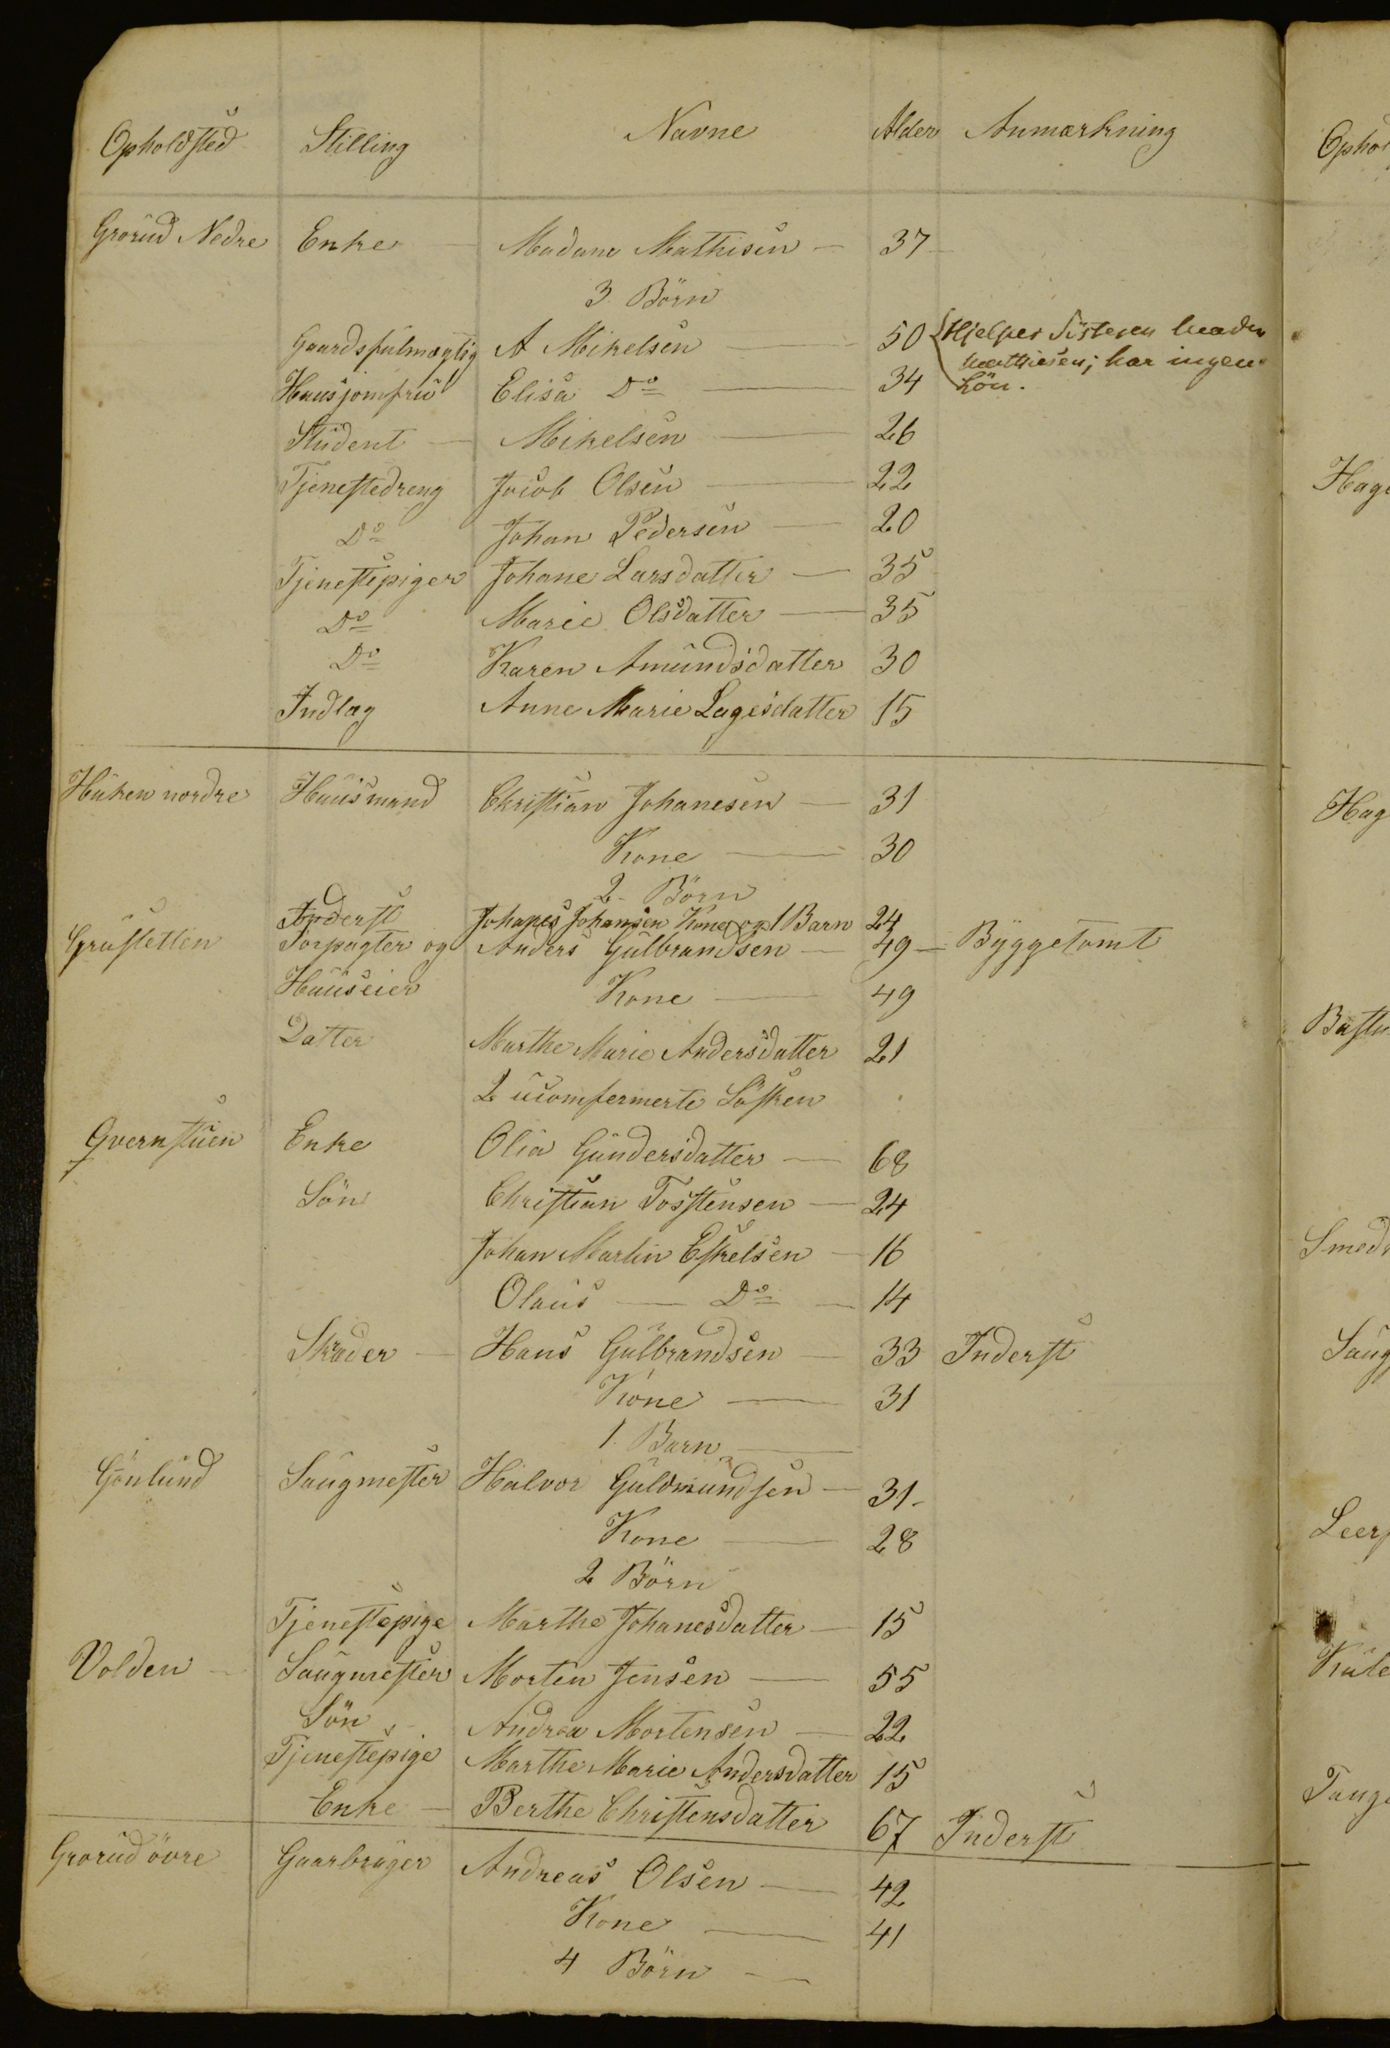 Opholdsted Stilling Navne Alder Anmærkning
Grorud Nedre Enke — Madam Mathisen — 37
3 Börn
Gaardsfulmægtig A Mikelsen — 50 Hjelper Sösteren madm
Mathiesen; har ingen
Huusjomfru Elisa Do — 34 Lön.
Student — Mikelsen — 26
Tjenestedreng Jacob Olsen — 22
Do Johan Pedersen — 20
Tjenestepiger Johane Larsdatter — 35
Do Marie Olsdatter — 35
Do Karen Amundsdatter 30
Indlag Anne Marie Lagesdatter 15
Huken nordre Huusmand Christian Johanesen — 31
Kone — 30
2 Börn
Inderst Johanes Johansen Kone og 1 Barn 24
Grusletten Forpagter og Anders Gulbrandsen — 49 — Byggetomt
Huuseier Kone — 49
Datter Marthe Marie Andersdatter 21
2 ucomfermerte Södsken
Qvernstuen Enke Olia Gundersdatter — 68
Sön Christian Tostensen — 24
Johan Martin Eskelsen — 16
Olaus — Do — 14
Skræder — Hans Gulbrandsen — 33 Inderst
Kone — 31
1 Barn —
Grönlund Saugmester Halvor Guldmundsen — 31
Kone — 28
2 Börn
Tjenestepige Marthe Johanesdatter — 15
Volden — Saugmester Morten Jensen — 55
Sön Andrea Mortensen — 22
Tjenestepige Marthe Marie Andersdatter 15
Enke — Berthe Christensdatter 67 Inderst
Grorud övre Gaarbruger Andreas Olsen — 42
Kone — 41
4 Börn —
Ophol
Hag
Hag
Smed
Saug
Leer